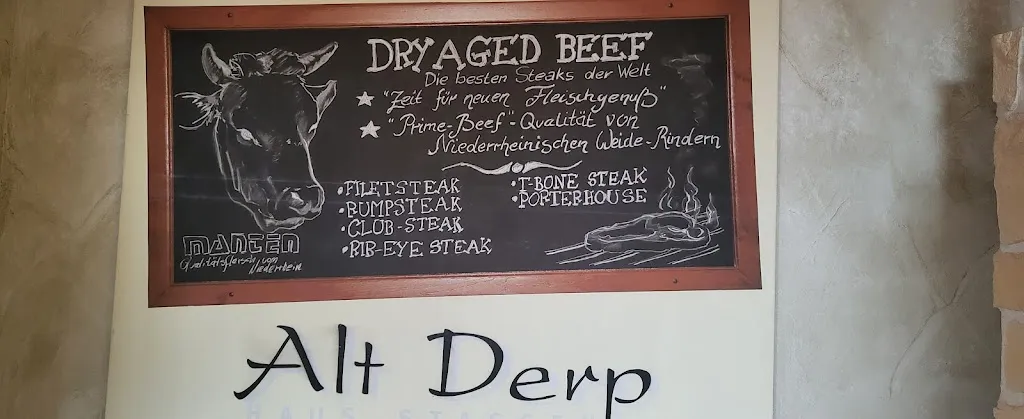 DRY AGED BEEF
Die besten Steaks der Welt
"Zeit für neuen Fleischgenuß"
"Prime-Beef"-Qualität von
Niederrheinischen Weide-Rindern
•FILETSTEAK
•RUMPSTEAK
•CLUB-STEAK
•RIB-EYE STEAK
•T-BONE STEAK
•PORTERHOUSE
MANTEN
Qualitätsfleisch vom
Niederrhein
Alt Derp
HAUS